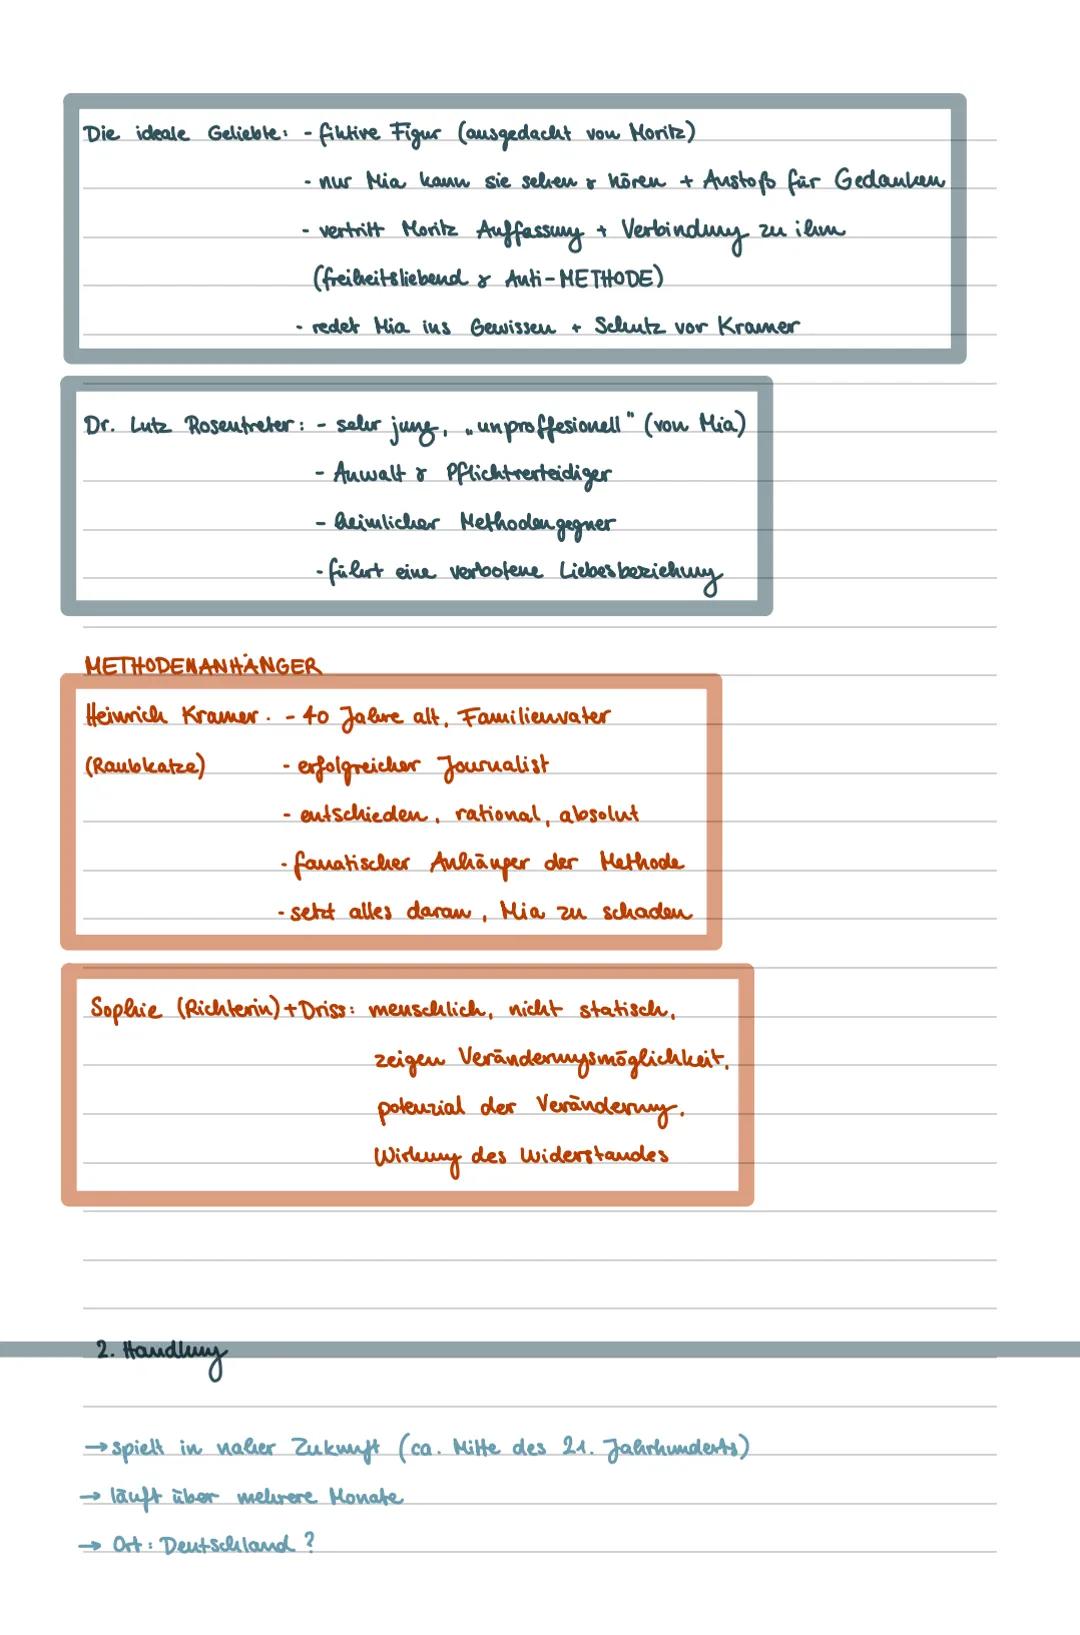 Die ideale Geliebte: - fiktive Figur (ausgedacht von Moritz)
- nur Mia kann sie sehen & hören + Anstoß für Gedanken
- vertritt Moritz Auffassung + Verbindung zu ihm
(freiheitsliebend & Anti-METHODE)
- redet Mia ins Gewissen + Schutz vor Kramer
Dr. Lutz Rosentreter: - sehr jung, „unproffesionell" (von Mia)
- Anwalt & Pflichtverteidiger
- heimlicher Methodengegner
- führt eine verbotene Liebesbeziehung
METHODENANHÄNGER
Heinrich Kramer. - 40 Jahre alt, Familienvater
(Raubkatze) - erfolgreicher Journalist
- entschieden, rational, absolut
- fanatischer Anhänger der Methode
- setzt alles daran, Mia zu schaden
Sophie (Richterin)+Driss: menschlich, nicht statisch,
zeigen Veränderungsmöglichkeit,
potenzial der Veränderung,
Wirkung des Widerstandes
2. Handlung
→ spielt in naher Zukunft (ca. Mitte des 21. Jahrhunderts)
→ läuft über mehrere Monate
→ Ort: Deutschland?